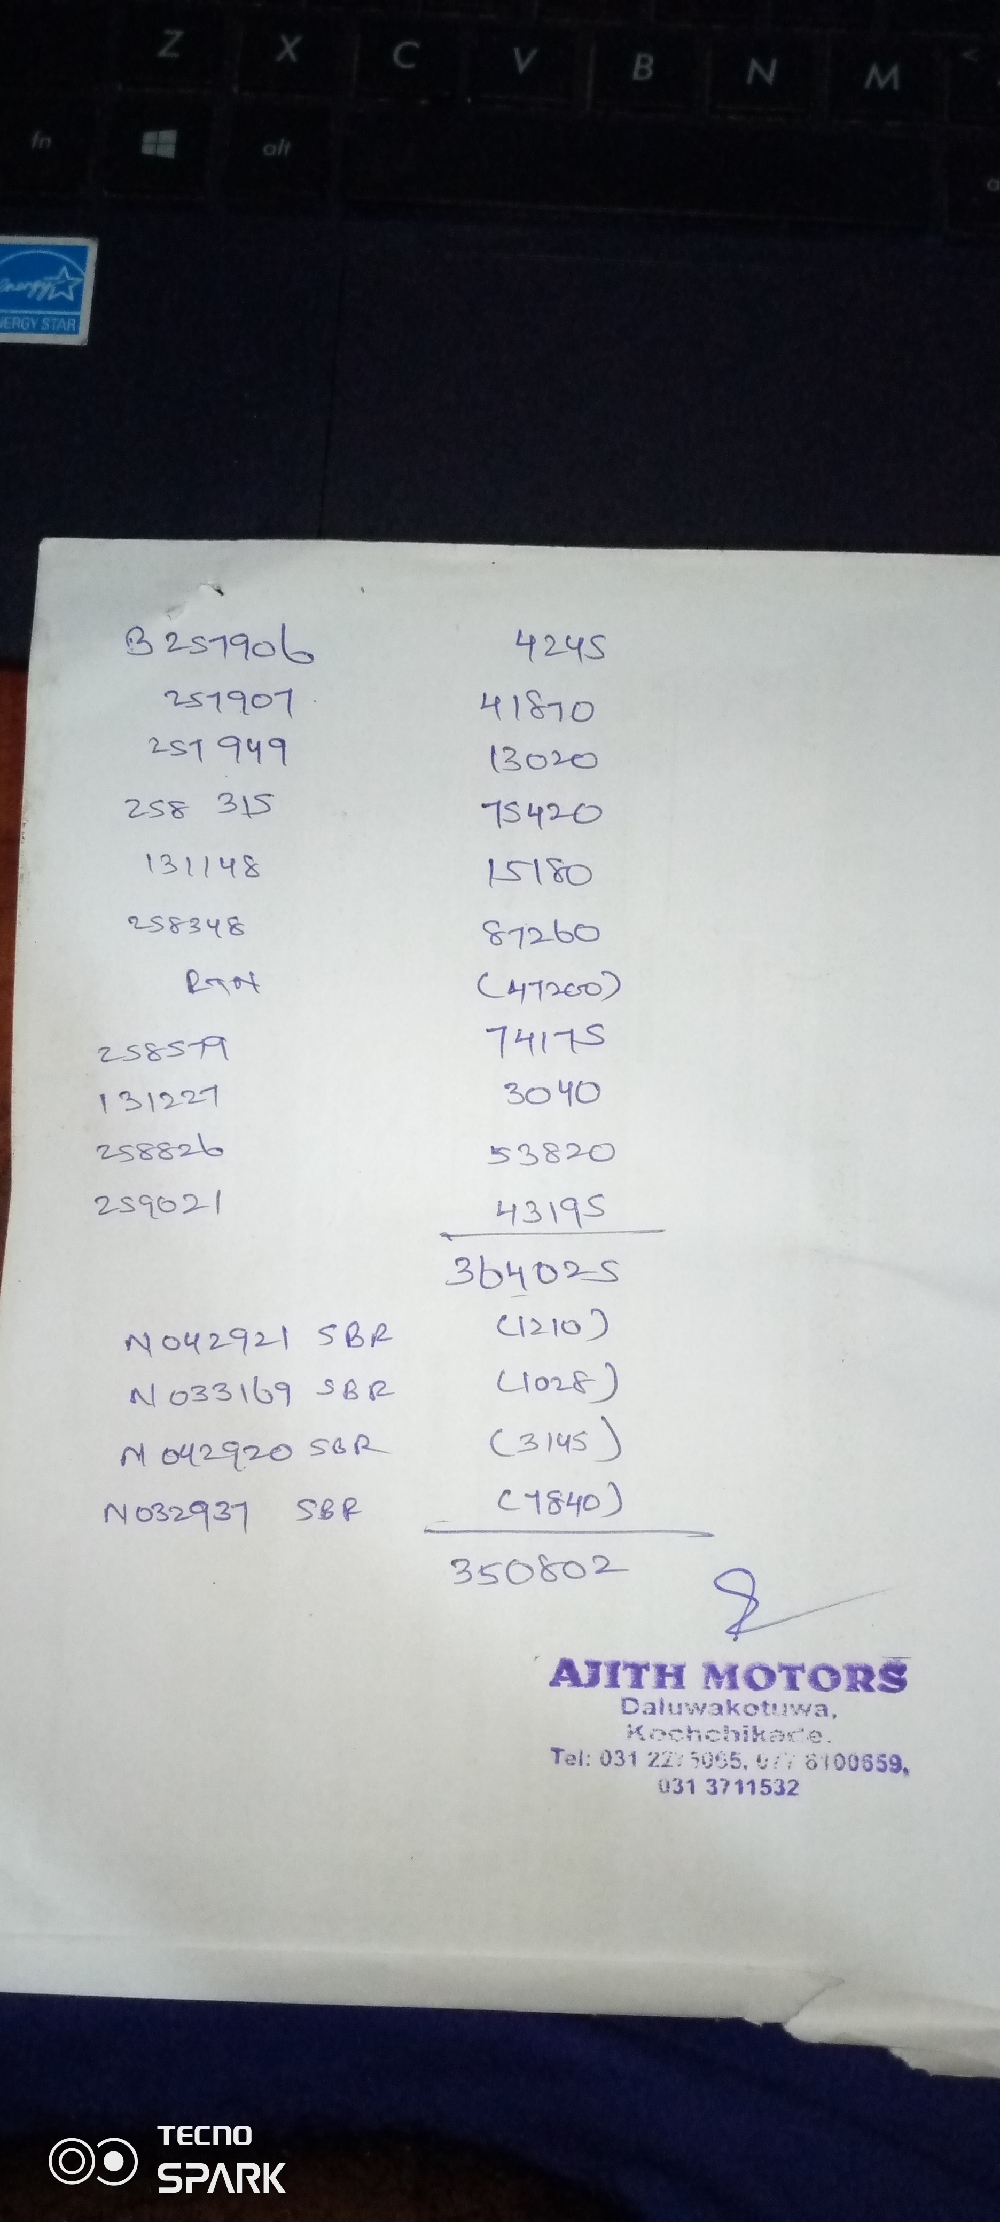 Z X C V B N M <
fn alt
energy
ENERGY STAR
B 257906 4245
257907 41870
257949 13020
258 315 75420
131148 15180
258348 87260
RTN (47200)
258579 74175
131227 3040
258826 53820
259021 43195
364025
N042921 SBR (1210)
N033169 SBR (1028)
N042920 SBR (3145)
N032937 SBR (7840)
350802
AJITH MOTORS
Daluwakotuwa,
Kochchikade.
Tel: 031
031 3711532
TECNO
SPARK